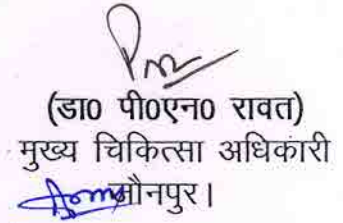 (डा0 पी0एन0 रावत)
मुख्य चिकित्सा अधिकारी
जौनपुर।